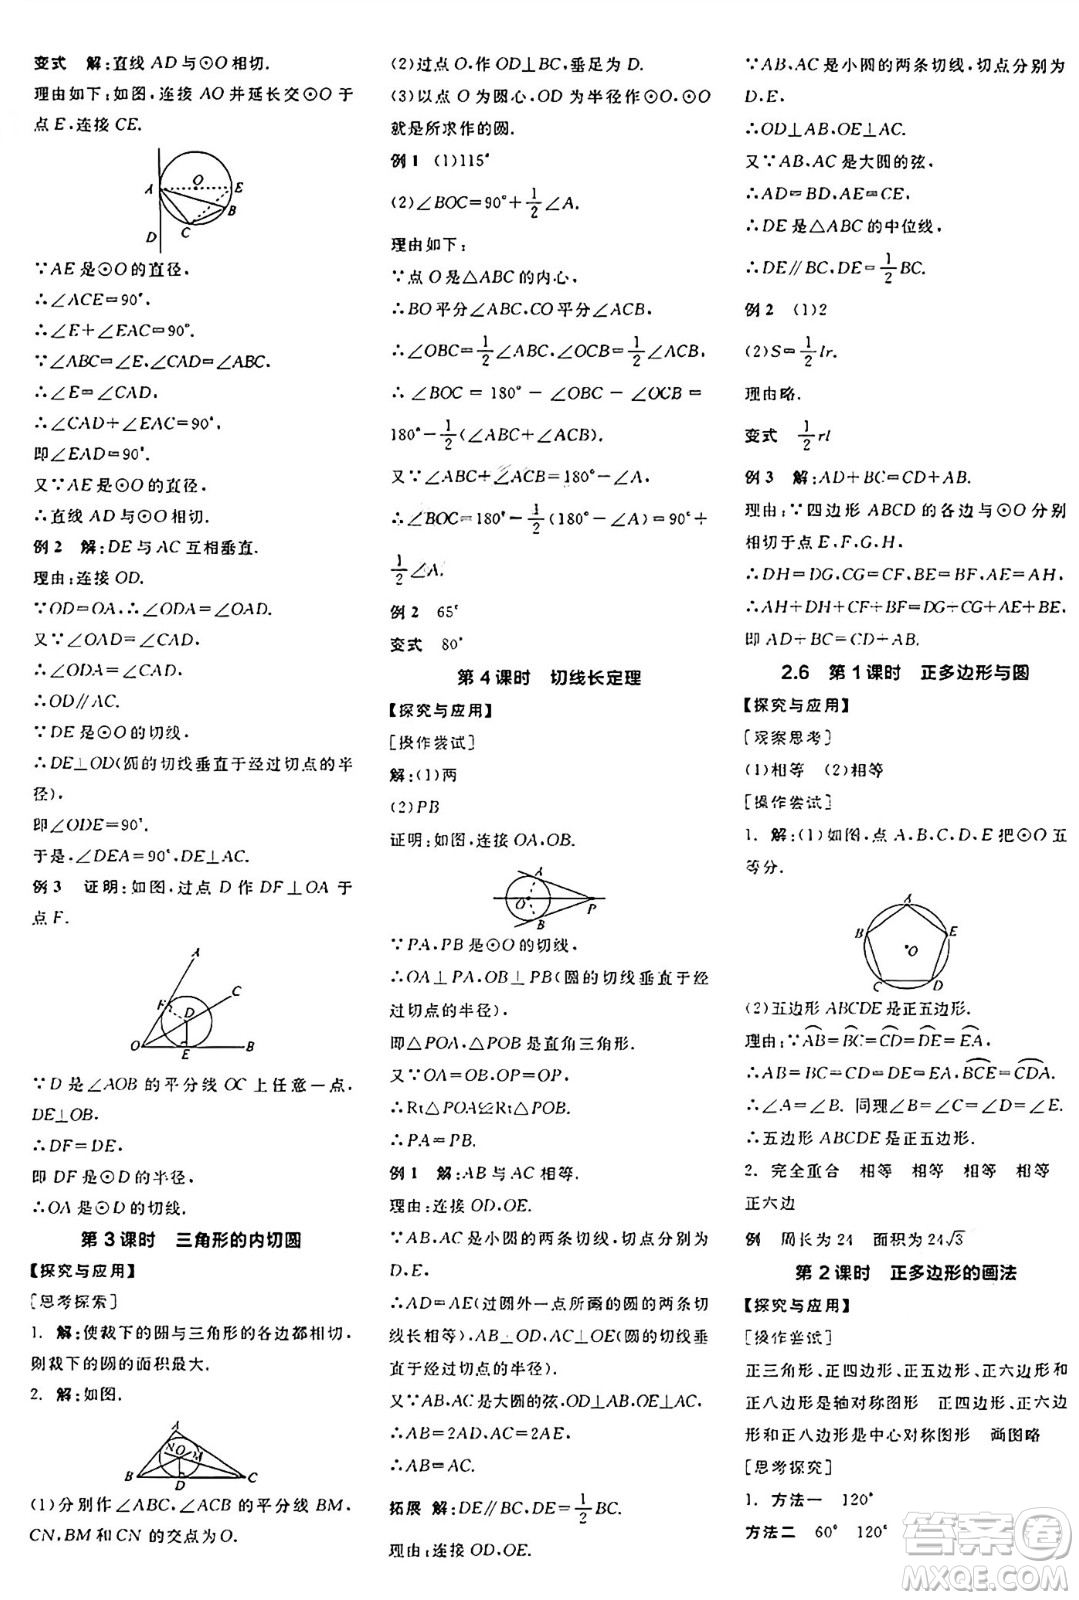 变式 解:直线 AD 与⊙O 相切.
理由如下:如图,连接 AO 并延长交⊙O 于
点 E,连接 CE.
A O E B C D
∵AE 是⊙O 的直径,
∴∠ACE=90°,
∴∠E+∠EAC=90°.
∵∠ABC=∠E,∠ABC=∠CAD,
∴∠E=∠CAD,
∴∠CAD+∠EAC=90°,
即∠EAD=90°.
又∵AE 是⊙O 的直径,
∴直线 AD 与⊙O 相切.
例 2 解:DE 与 AC 互相垂直.
理由:连接 OD.
∵OD=OA,∴∠ODA=∠OAD.
又∵∠OAD=∠CAD,
∴∠ODA=∠CAD,
∴OD∥AC.
∵DE 是⊙O 的切线,
∴DE⊥OD(圆的切线垂直于经过切点的半
径),
即∠ODE=90°,
于是,∠DEA=90°,DE⊥AC.
例 3 证明:如图,过点 D 作 DF⊥OA 于
点 F.
A F D C O E B
∵D 是∠AOB 的平分线 OC 上任意一点,
DE⊥OB,
∴DF=DE,
即 DF 是⊙D 的半径,
∴OA 是⊙D 的切线.
第 3 课时 三角形的内切圆
【探究与应用】
[思考探索]
1. 解:使裁下的圆与三角形的各边都相切,
则裁下的圆的面积最大.
2. 解:如图.
A N O M B D C
(1)分别作∠ABC,∠ACB 的平分线 BM,
CN,BM 和 CN 的交点为 O.
(2)过点 O,作 OD⊥BC,垂足为 D.
(3)以点 O 为圆心,OD 为半径作⊙O,⊙O
就是所求作的圆.
例 1 (1)115°
(2)∠BOC=90°+1/2∠A.
理由如下:
∵点 O 是△ABC 的内心,
∴BO 平分∠ABC,CO 平分∠ACB,
∴∠OBC=1/2∠ABC,∠OCB=1/2∠ACB,
∴∠BOC=180°-∠OBC-∠OCB=
180°-1/2(∠ABC+∠ACB).
又∵∠ABC+∠ACB=180°-∠A,
∴∠BOC=180°-1/2(180°-∠A)=90°+
1/2∠A.
例 2 65°
变式 80°
第 4 课时 切线长定理
【探究与应用】
[操作尝试]
解:(1)两
(2)PB
证明:如图,连接 OA,OB.
A O P B
∵PA,PB 是⊙O 的切线,
∴OA⊥PA,OB⊥PB(圆的切线垂直于经
过切点的半径),
即△POA,△POB 是直角三角形.
又∵OA=OB,OP=OP,
∴Rt△POA≌Rt△POB,
∴PA=PB.
例 1 解:AB 与 AC 相等.
理由:连接 OD,OE.
∵AB,AC 是小圆的两条切线,切点分别为
D,E,
∴AD=AE(过圆外一点所画的圆的两条切
线长相等),AB⊥OD,AC⊥OE(圆的切线垂
直于经过切点的半径).
又∵AB,AC 是大圆的弦,AB⊥OD,AC⊥OE,
∴AB=2AD,AC=2AE,
∴AB=AC.
拓展 解:DE∥BC,DE=1/2BC.
理由:连接 OD,OE.
∵AB,AC 是小圆的两条切线,切点分别为
D,E,
∴OD⊥AB,OE⊥AC.
又∵AB,AC 是大圆的弦,
∴AD=BD,AE=CE,
∴DE 是△ABC 的中位线,
∴DE∥BC,DE=1/2BC.
例 2 (1)2
(2)S=1/2lr.
理由略.
变式 1/2rl
例 3 解:AD+BC=CD+AB.
理由:∵四边形 ABCD 的各边与⊙O 分别
相切于点 E,F,G,H,
∴DH=DG,CG=CF,BF=BE,AE=AH,
∴AH+DH+CF+BF=DG+CG+AE+BE,
即 AD+BC=CD+AB.
2.6 第 1 课时 正多边形与圆
【探究与应用】
[观察思考]
(1)相等 (2)相等
[操作尝试]
1. 解:(1)如图,点 A,B,C,D,E 把⊙O 五
等分.
A B E O C D
(2)五边形 ABCDE 是正五边形.
理由:∵AB=BC=CD=DE=EA,
∴AB=BC=CD=DE=EA,BCE=CDA,
∴∠A=∠B. 同理∠B=∠C=∠D=∠E,
∴五边形 ABCDE 是正五边形.
2. 完全重合 相等 相等 相等 相等
正六边
例 周长为 24 面积为 24√3
第 2 课时 正多边形的画法
【探究与应用】
[操作尝试]
正三角形、正四边形、正五边形、正六边形和
正八边形是轴对称图形 正四边形、正六边
形和正八边形是中心对称图形 画图略
[思考探究]
1. 方法一 120°
方法二 60° 120°
答案圈
MXQE.COM